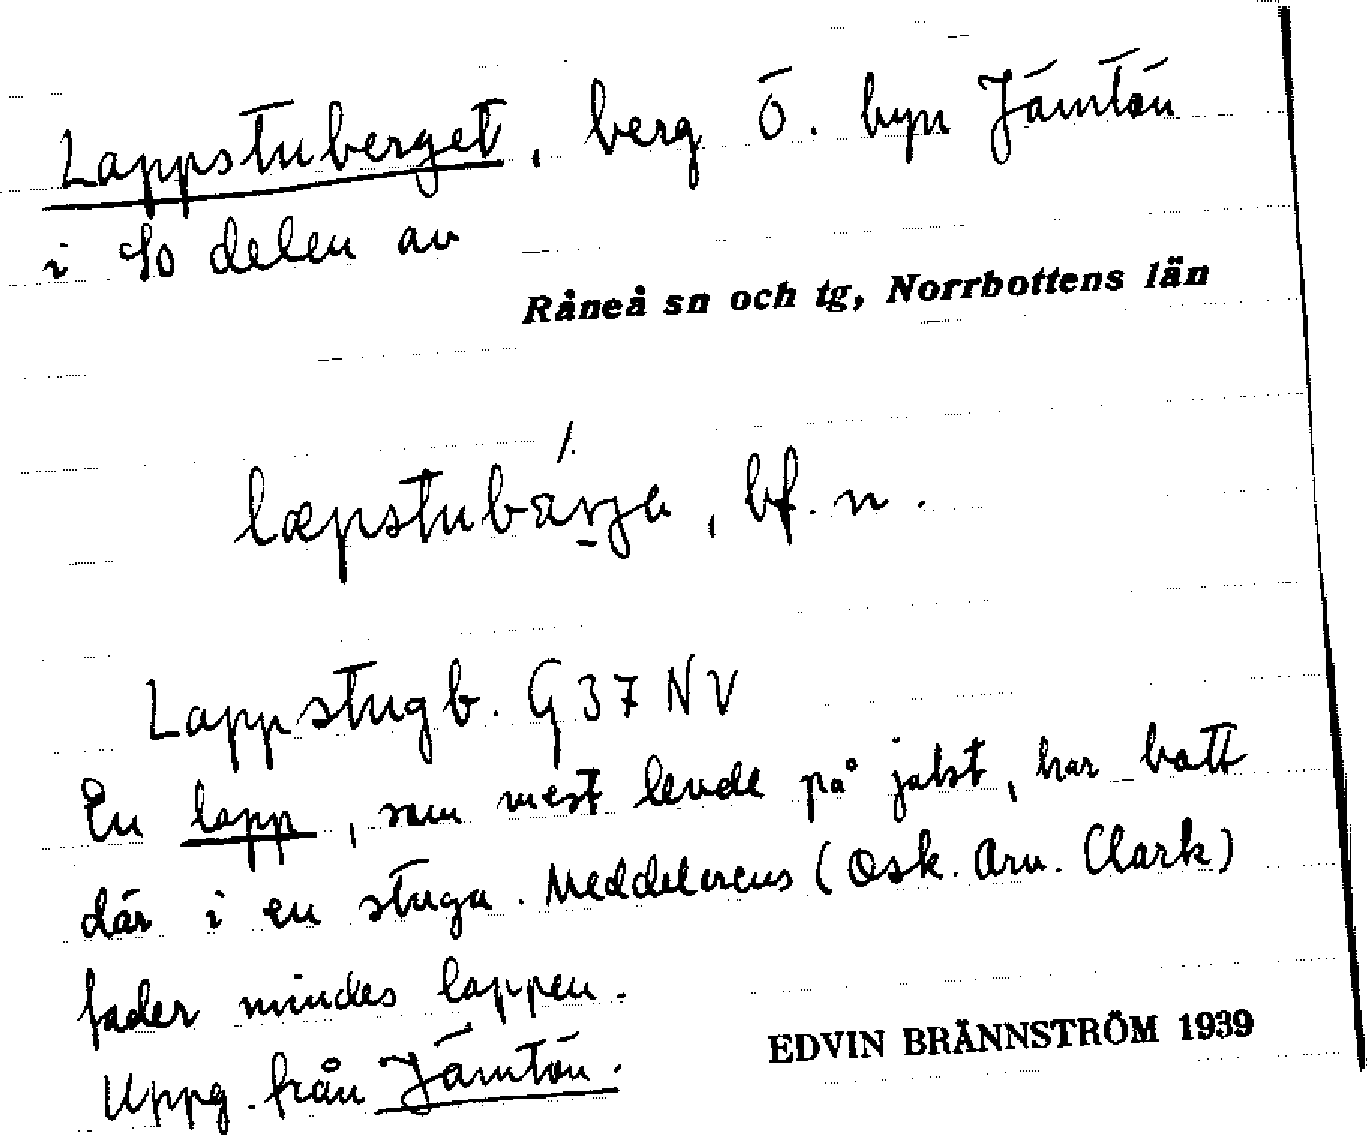 Lappstuberget, berg Ö. byn Jämtön
i So delen av
Råneå sn och tg, Norrbottens län
læpstubärja, bf. n.
Lappstugb. G 37 NV
En lapp, som mest levde på jakt, har bott
där i en stuga. Meddelarens (Osk. Arv. Clark)
fader mindes lappen.
Uppg. från Jämtön.
EDVIN BRÄNNSTRÖM 1939